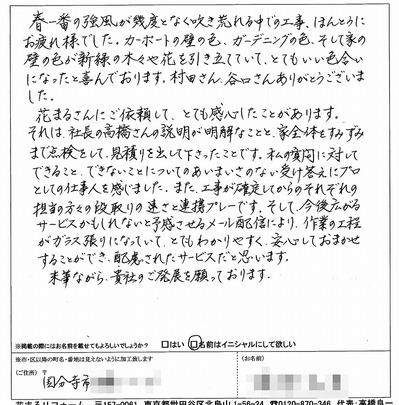 春一番の強風が幾度となく吹き荒れる中での工事、ほんとうに
お疲れ様でした。カーポートの壁の色、ガーデニングの色、そして家の
壁の色が新緑の木々や花を引き立てていて、とてもいい色合い
になったと喜んでおります。村田さん、谷口さんありがとうございま
した。
花まるさんにご依頼して、とても感心したことがあります。
それは、社長の高橋さんの説明が明解なことと、家全体をすみずみ
まで点検をして、見積りを出して下さったことです。私の質問に対して
できること、できないことについてのあいまいさのない受け答えにプロ
としての仕事人を感じました。また、工事が確定してからのそれぞれの
担当の方々の段取りの速さと連携プレーです。そして、今後広がる
サービスかもしれないと予感させるメール配信により、作業の工程
がガラス張りになっていて、とてもわかりやすく、安心しておまかせ
することができ、配慮されたサービスだと思います。
末筆ながら、貴社のご発展を願っております。
※掲載の際にはお名前を載せてもよろしいでしょうか? □はい □名前はイニシャルにして欲しい
※市・区以降の町名・番地は見えないように加工致します
(ご住所) 〒 (お名前)
国分寺市
花まるリフォーム 〒157-0061 東京都世田谷区北烏山1-56-24 ☎0120-870-346 代表:高橋良一